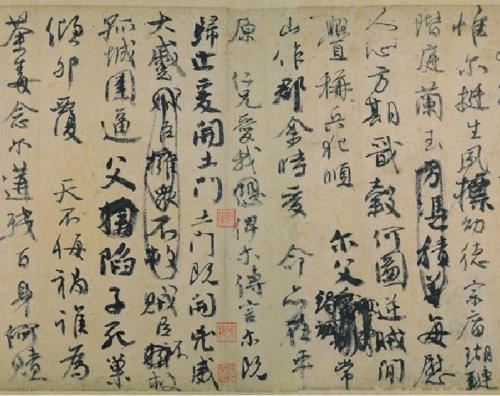 惟尔挺生夙標幼德宗廟瑚璉
階庭蘭玉方憑積善每慰
人心方期戩穀何圖逆賊閒
釁稱兵犯順 尔父竭誠常
山作郡余時受 命亦在平
原 仁兄愛我恐俾尔傳言尔既
歸止爰開土門土門既開凶威
大蹙賊臣擁衆不救賊臣不救
孤城圍逼父陷子死巢
傾卵覆 天不悔禍誰為
荼毒念尔遘殘百身何贖